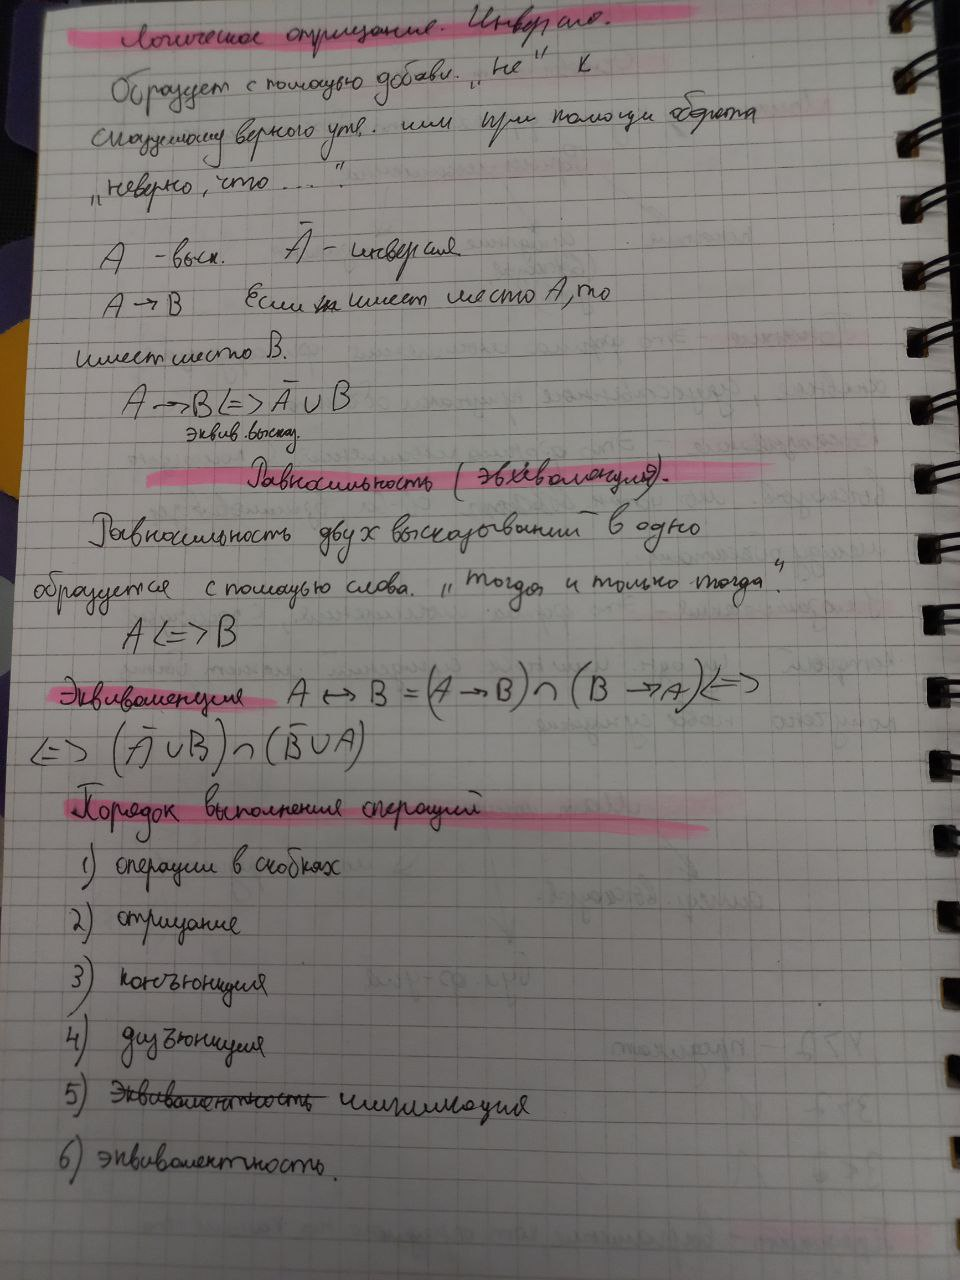 Логическое отрицание. Инверсия.
Образует с помощью добавл. „не" к
сказуемому верного утв. или при помощи оборота
„неверно, что ...".
A - выск. Ā - инверсия
A → B Если имеет место A, то
имеет место B.
A → B <=> Ā ∪ B
эквив. выска.
Равносильность (эквиваленция).
Равносильность двух высказываний в одно
образуется с помощью слова. „тогда и только тогда".
A <=> B
Эквиваленция A ↔ B = (A → B) ∩ (B → A) <=>
<=> (Ā ∪ B) ∩ (B̄ ∪ A)
Порядок выполнения операций
1) операции в скобках
2) отрицание
3) конъюнкция
4) дизъюнкция
5) Эквивалентность импликация
6) эквивалентность.